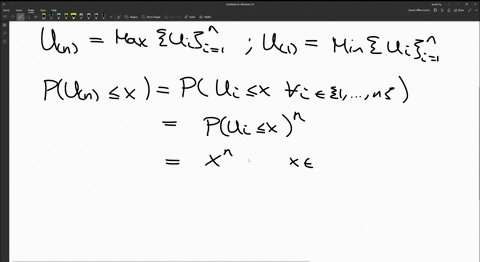 U₍ₙ₎ = Max {Uᵢ}ⁿᵢ₌₁ ; U₍₁₎ = Min {Uᵢ}ⁿᵢ₌₁
P(U₍ₙ₎ ≤ x) = P(Uᵢ ≤ x ∀i ∈ {1,...,n})
= P(Uᵢ ≤ x)ⁿ
= xⁿ x ∈